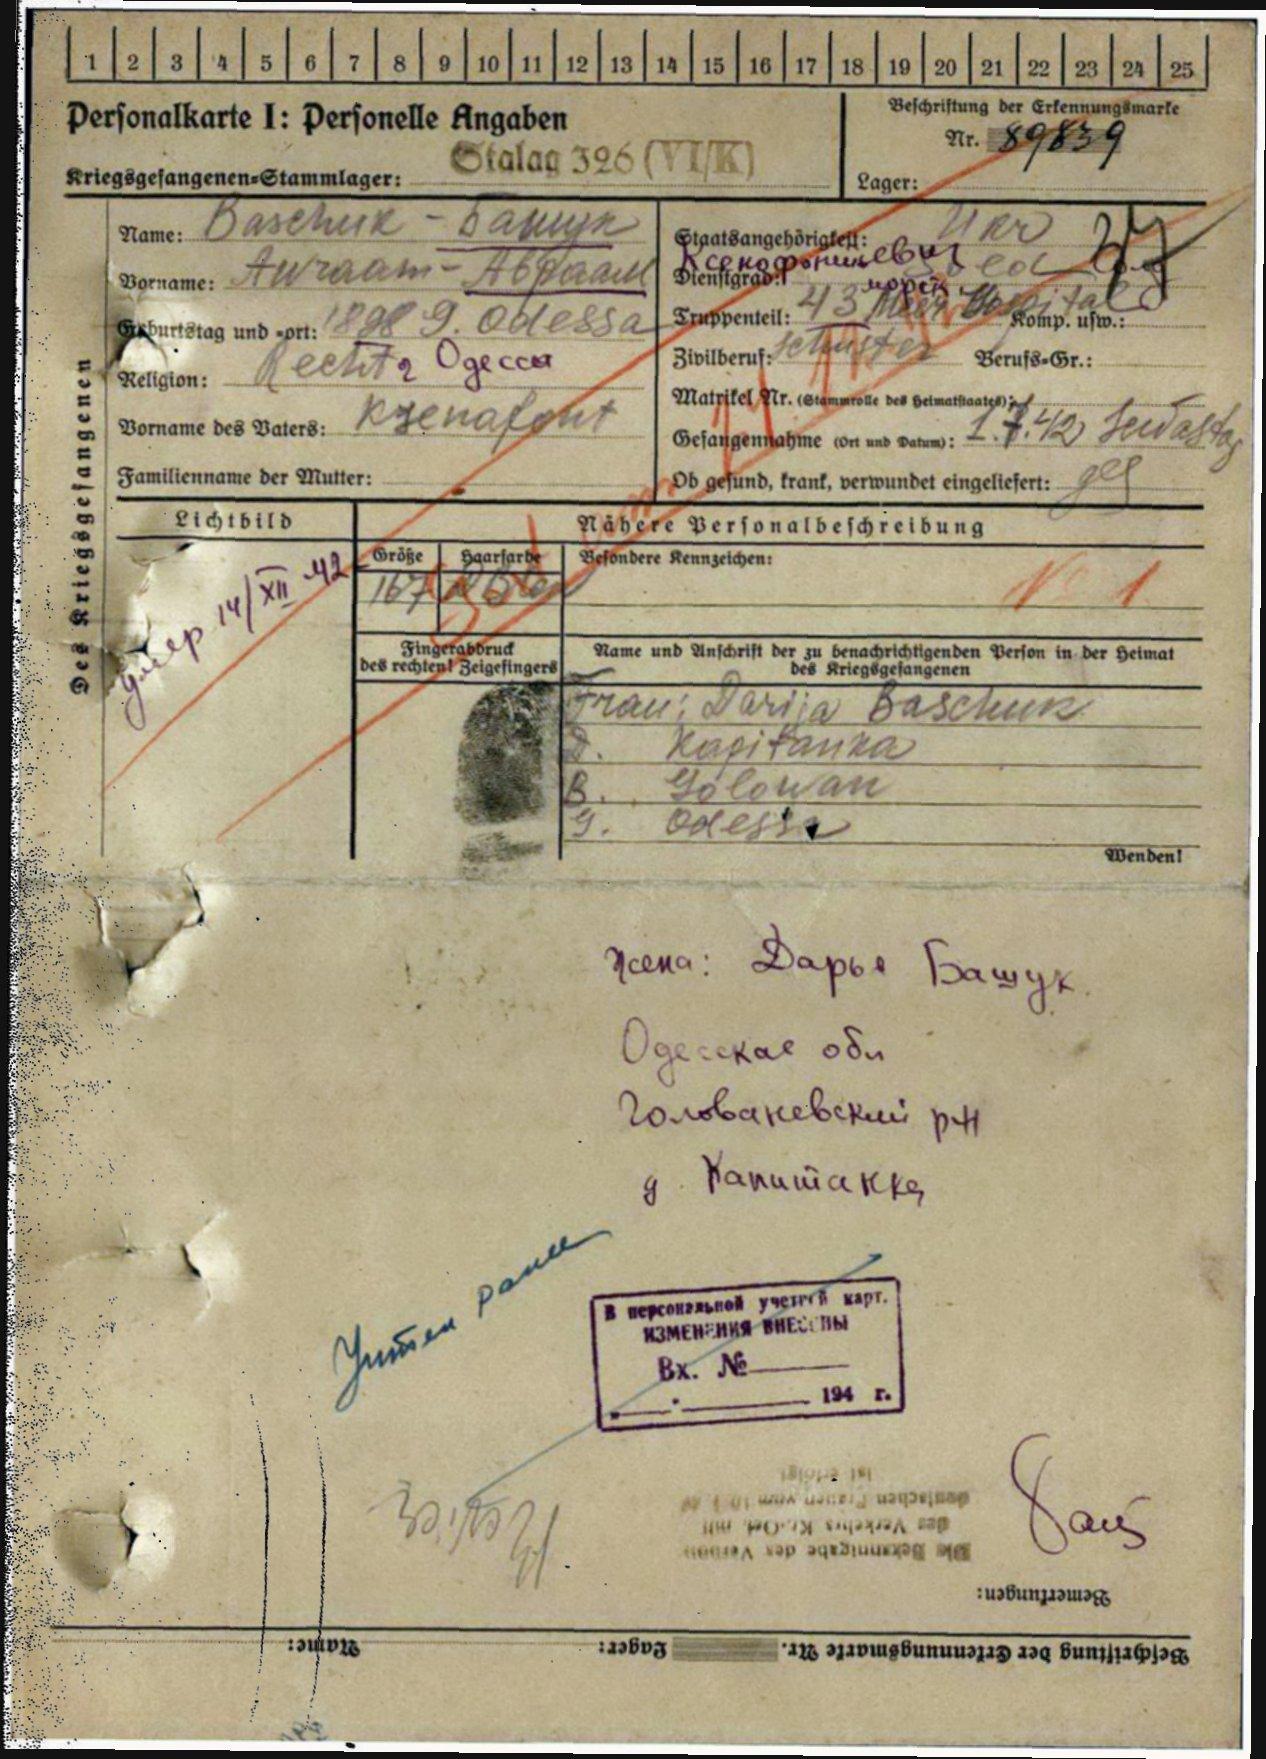 1 2 3 4 5 6 7 8 9 10 11 12 13 14 15 16 17 18 19 20 21 22 23 24 25
Personalkarte I: Personelle Angaben
Kriegsgefangenen-Stammlager: Stalag 326 (VI/K)
Beschriftung der Erkennungsmarke
Nr. 89839
Lager:
Des Kriegsgefangenen
Name: Baschuk - Башук
Vorname: Awraam - Авраам
Geburtstag und -ort: 1898 9. Odessa
г Одесса
Religion:
Vorname des Vaters: Ksenafont
Familienname der Mutter:
Staatsangehörigkeit: Ukr
Ксенофонтьевич
Dienstgrad:
морск
Truppenteil: 43 Komp. usw.:
Zivilberuf: Schuster Berufs-Gr.:
Matrikel Nr. (Stammrolle des Heimatstaates):
Gefangennahme (Ort und Datum): 1.7.42
Ob gesund, krank, verwundet eingeliefert: ges
37
Lichtbild
умер 14/XII 42
Nähere Personalbeschreibung
Größe Haarfarbe Besondere Kennzeichen:
167
№ 1
Fingerabdruck
des rechten! Zeigefingers
Name und Anschrift der zu benachrichtigenden Person in der Heimat
des Kriegsgefangenen
Frau: Darija Baschuk
D. Kapitanka
B. Golowan
G. Odessa
Wenden!
жена: Дарья Башук
Одесская обл
Голованевский р-н
д. Капитанка
Учтен ранее
В персональной учетной карт.
ИЗМЕНЕНИЯ ВНЕСЕНЫ
Вх. №
194 г.
Die Bekanntgabe des Verbots
des Verkehrs Kr.-Gef. mit
deutschen Frauen vom
ist erfolgt
Bemerkungen:
Beschriftung der Erkennungsmarke Nr. Lager: Name: